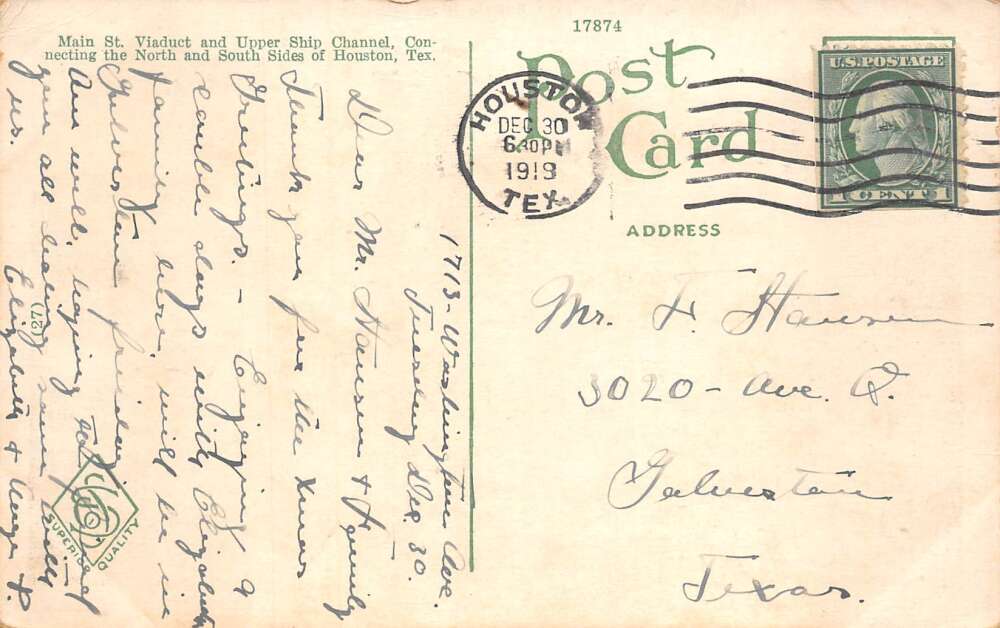 17874
Main St. Viaduct and Upper Ship Channel, Con-
necting the North and South Sides of Houston, Tex.
Post
Card
HOUSTON
DEC 30
630PM
1919
TEX.
U.S. POSTAGE
1 CENT 1
ADDRESS
Mr. F. Hansen
3020 - Ave. Q.
Galveston
Texas.
1713 - Washington Ave.
Tuesday Dec. 30.
Dear Mr. Hansen & Family
Thank you for the Xmas
Greetings. - Enjoying a
couple days with Elizabeth &
family here. will be in
Galveston friday.
Am well, hoping to find
you all being same, with
us.
Elizabeth &
(27)
SUPERIOR QUALITY